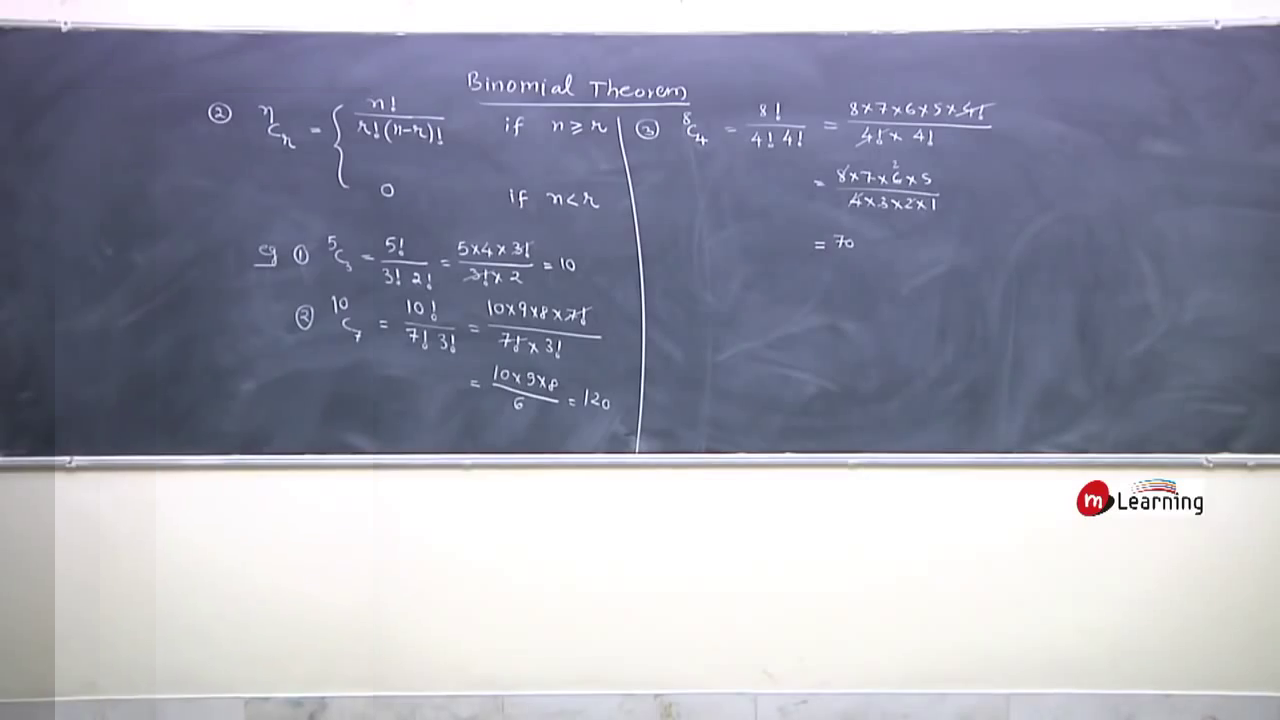 Binomial Theorem
② ⁿCᵣ = { n! / r!(n-r)! if n ≥ r
0 if n < r
eg ① ⁵C₃ = 5! / 3! 2! = 5×4×3! / 3!×2 = 10
② ¹⁰C₇ = 10! / 7! 3! = 10×9×8×7! / 7!×3!
= 10×9×8 / 6 = 120
③ ⁸C₄ = 8! / 4! 4! = 8×7×6×5×4! / 4!× 4!
= 8×7×6×5 / 4×3×2×1 2
= 70
m Learning